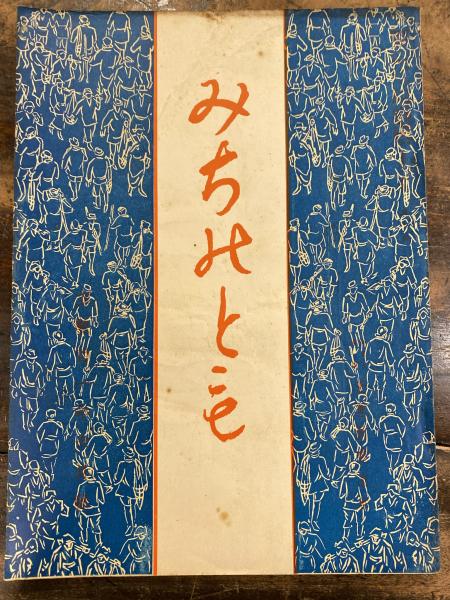 みちのとも